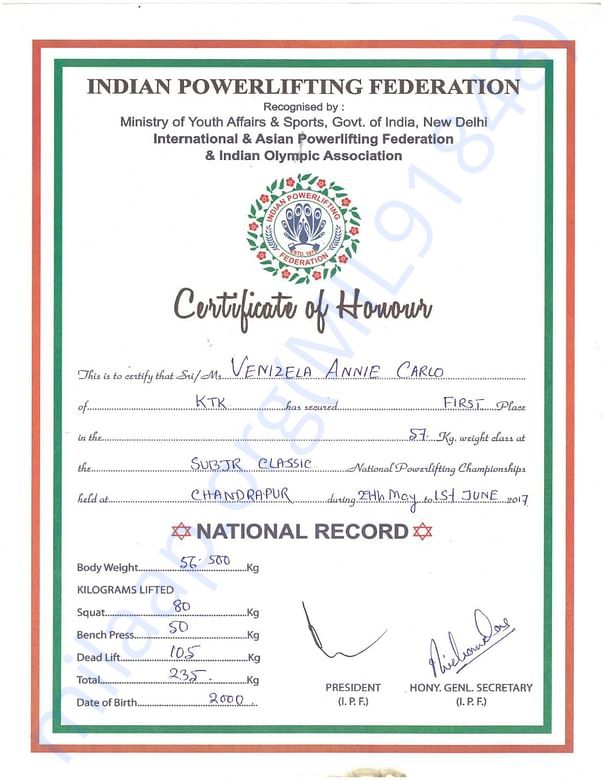 INDIAN POWERLIFTING FEDERATION
Recognised by :
Ministry of Youth Affairs & Sports, Govt. of India, New Delhi
International & Asian Powerlifting Federation
& Indian Olympic Association
INDIAN POWERLIFTING
FEDERATION
Certificate of Honour
This is to certify that Sri/Ms. VENIZELA ANNIE CARLO
of KTK has secured FIRST Place
in the 57 Kg. weight class at
the SUBJR CLASSIC National Powerlifting Championships
held at CHANDRAPUR during 27th May to 1st JUNE 2017
NATIONAL RECORD
Body Weight 56.500 Kg
KILOGRAMS LIFTED
Squat 80 Kg
Bench Press 50 Kg
Dead Lift 105 Kg
Total 235 Kg
Date of Birth 2000
PRESIDENT
(I. P. F.)
HONY. GENL. SECRETARY
(I. P. F.)
milaap.org(MIL91848)